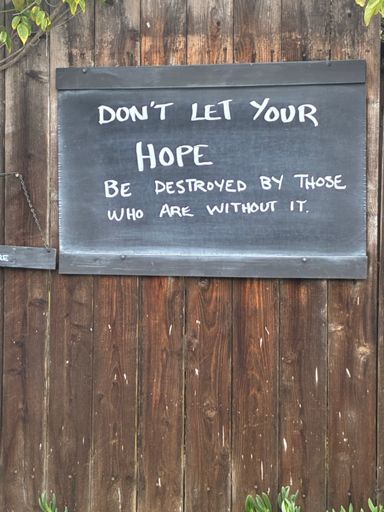 DON'T LET YOUR
HOPE
BE DESTROYED BY THOSE
WHO ARE WITHOUT IT.